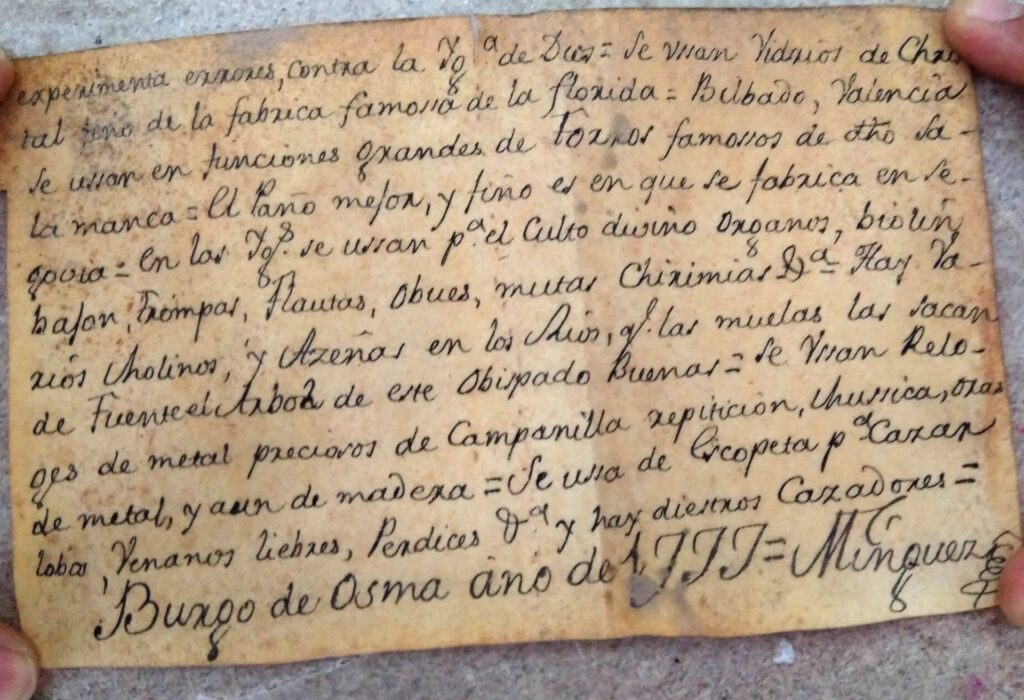 experimenta errores, contra la Yg.ª de Dios = Se ussan Vidrios de Chris
tal fino de la fabrica famossa de la florida = Bilbado, Valencia
se ussan en funciones grandes de Torros famossos de dho Sa-
la manca = El Paño mejor, y fino es en que se fabrica en Se-
govia = En las Yg.s se ussan p.ª el Culto divino Organos, biolin,
bajon, Trompas, Flautas, Obues, mutas Chirimias &ª = Hay Va-
rios Molinos, y Azeñas en los Rios, q.e las muelas las sacan
de Fuente el Arbol de este Obispado Buenas = Se Vssan Relo-
ges de metal preciosos de Campanilla repiticion, Mussica, oras
de metal, y aun de madera = Se ussa de Escopeta p.ª Cazar
lobos, Venanos liebres, Perdices &ª y hay diestros Cazadores =
Burgo de Osma año de 1777 = Minguez